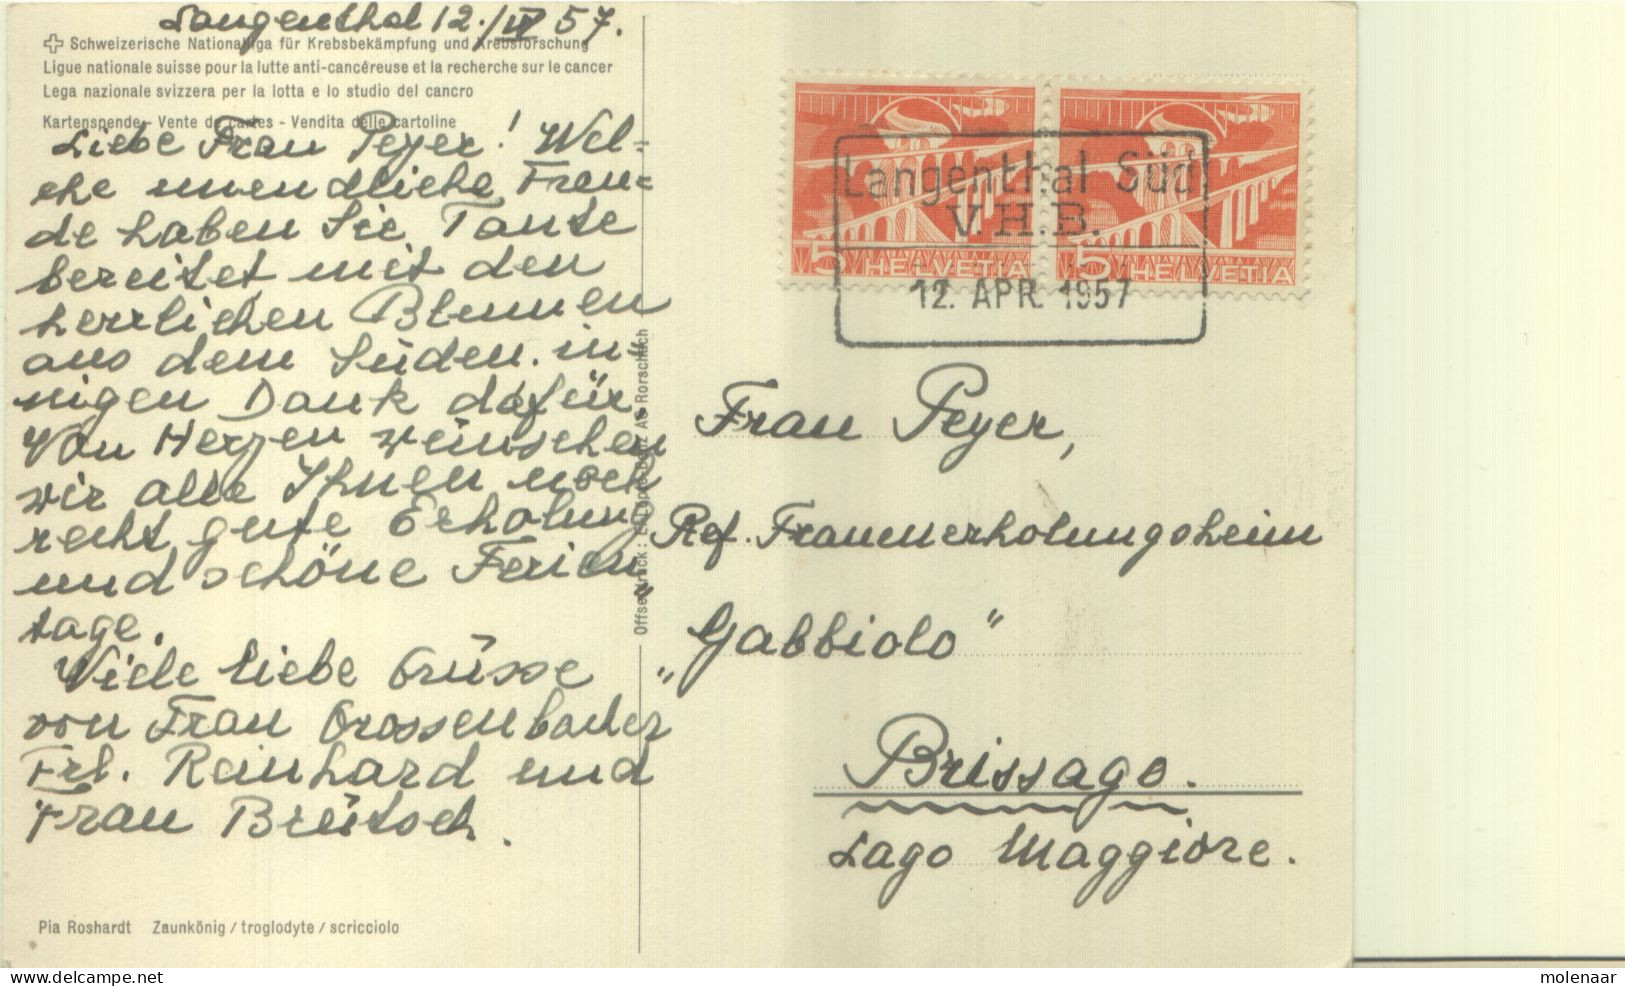 Langenthal 12./IV 57.
Schweizerische Nationalliga für Krebsbekämpfung und Krebsforschung
Ligue nationale suisse pour la lutte anti-cancéreuse et la recherche sur le cancer
Lega nazionale svizzera per la lotta e lo studio del cancro
Kartenspende - Vente de cartes - Vendita delle cartoline
Liebe Frau Peyer! Wel=
che unendliche Freu=
de haben Sie Tante
bereitet mit den
herrlichen Blumen
aus dem Süden. in=
nigen Dank dafür.
Von Herzen wünschen
wir alle Ihnen noch
recht gute Erholung
und schöne Ferien"
tage.
Viele liebe Grüsse
von Frau Grossenbacher
Frl. Reinhard und
Frau Breütsch.
Pia Roshardt Zaunkönig / troglodyte / scricciolo
Offsetdruck: AG Rorschach
5 HELVETIA
5 HELVETIA
Langenthal Süd
V.H.B.
12. APR. 1957
Frau Peyer,
Ref. Frauenerholungsheim
"Gabbiolo"
Brissago.
Lago Maggiore.
molenaar